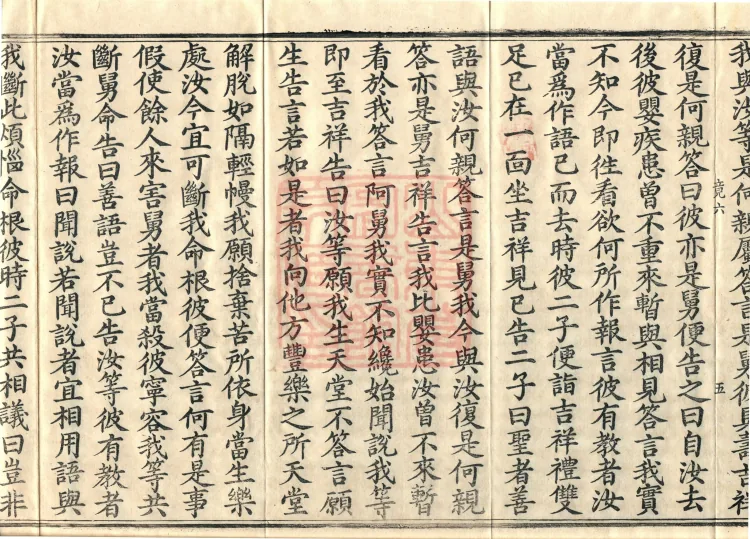 我與汝等是何親屬答言是舅彼具壽吉祥
竟六 五
復是何親答曰彼亦是舅便告之曰自汝去
後彼嬰疾患曾不重來暫與相見答言我實
不知今即往看欲何所作報言彼有教者汝
當爲作語已而去時彼二子便詣吉祥禮雙
足已在一面坐吉祥見已告二子曰聖者善
語與汝何親答言是舅我今與汝復是何親
答亦是舅吉祥告言我比嬰患汝曾不來暫
看於我答言阿舅我實不知纔始聞說我等
即至吉祥告曰汝等願我生天堂不答言願
生告言若如是者我向他方豐樂之所天堂
解脫如隔輕幔我願捨棄苦所依身當生樂
處汝今宜可斷我命根彼便答言何有是事
假使餘人來害舅者我當殺彼寧容我等共
斷舅命告曰善語豈不已告汝等彼有教者
汝當爲作報曰聞說若聞說者宜相用語與
我斷此煩惱命根彼時二子共相議曰豈非